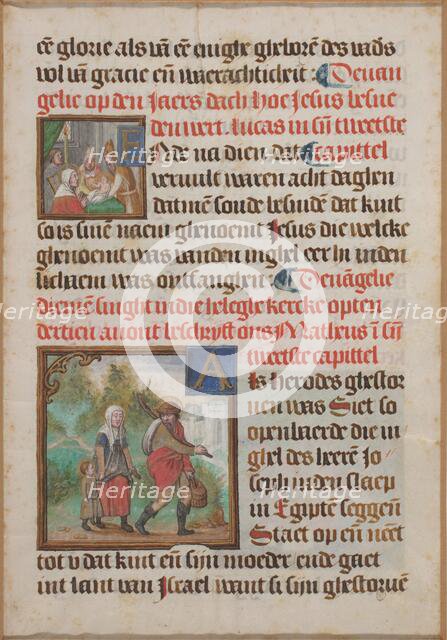 eē glorie als vā eē enighe gheborē des vad͛s
vol vā gracie eñ waerachticheit: Devan
gelie op den Jaers dach hoe Jesus besne
den wert. lucas in sȳ tweetste
Ende na dien dat Capittel
vervult waren acht daghen
datmē soude besnidē dat kint
so is sinē naem ghenoemt Jesus die welcke
ghenoemt was vanden inghel eer hi inden
lichaem was ontfanghen: Devāgelie
diemē singht in die heleghe kercke opten
dertien avont bescrijft ons Matheus ī sȳ
tweetste capittel
Als herodes ghestor
ven was Siet so
openbaerde die in
ghel des heeren Jo
seph inden slaep
in Egipte seggen
Staet op eñ neēt
tot v dat kint eñ sijn moeder ende gaet
int lant van Israel want si sijn ghestorvē
Heritage
Heritage
Heritage
Heritage
Heritage
Heritage